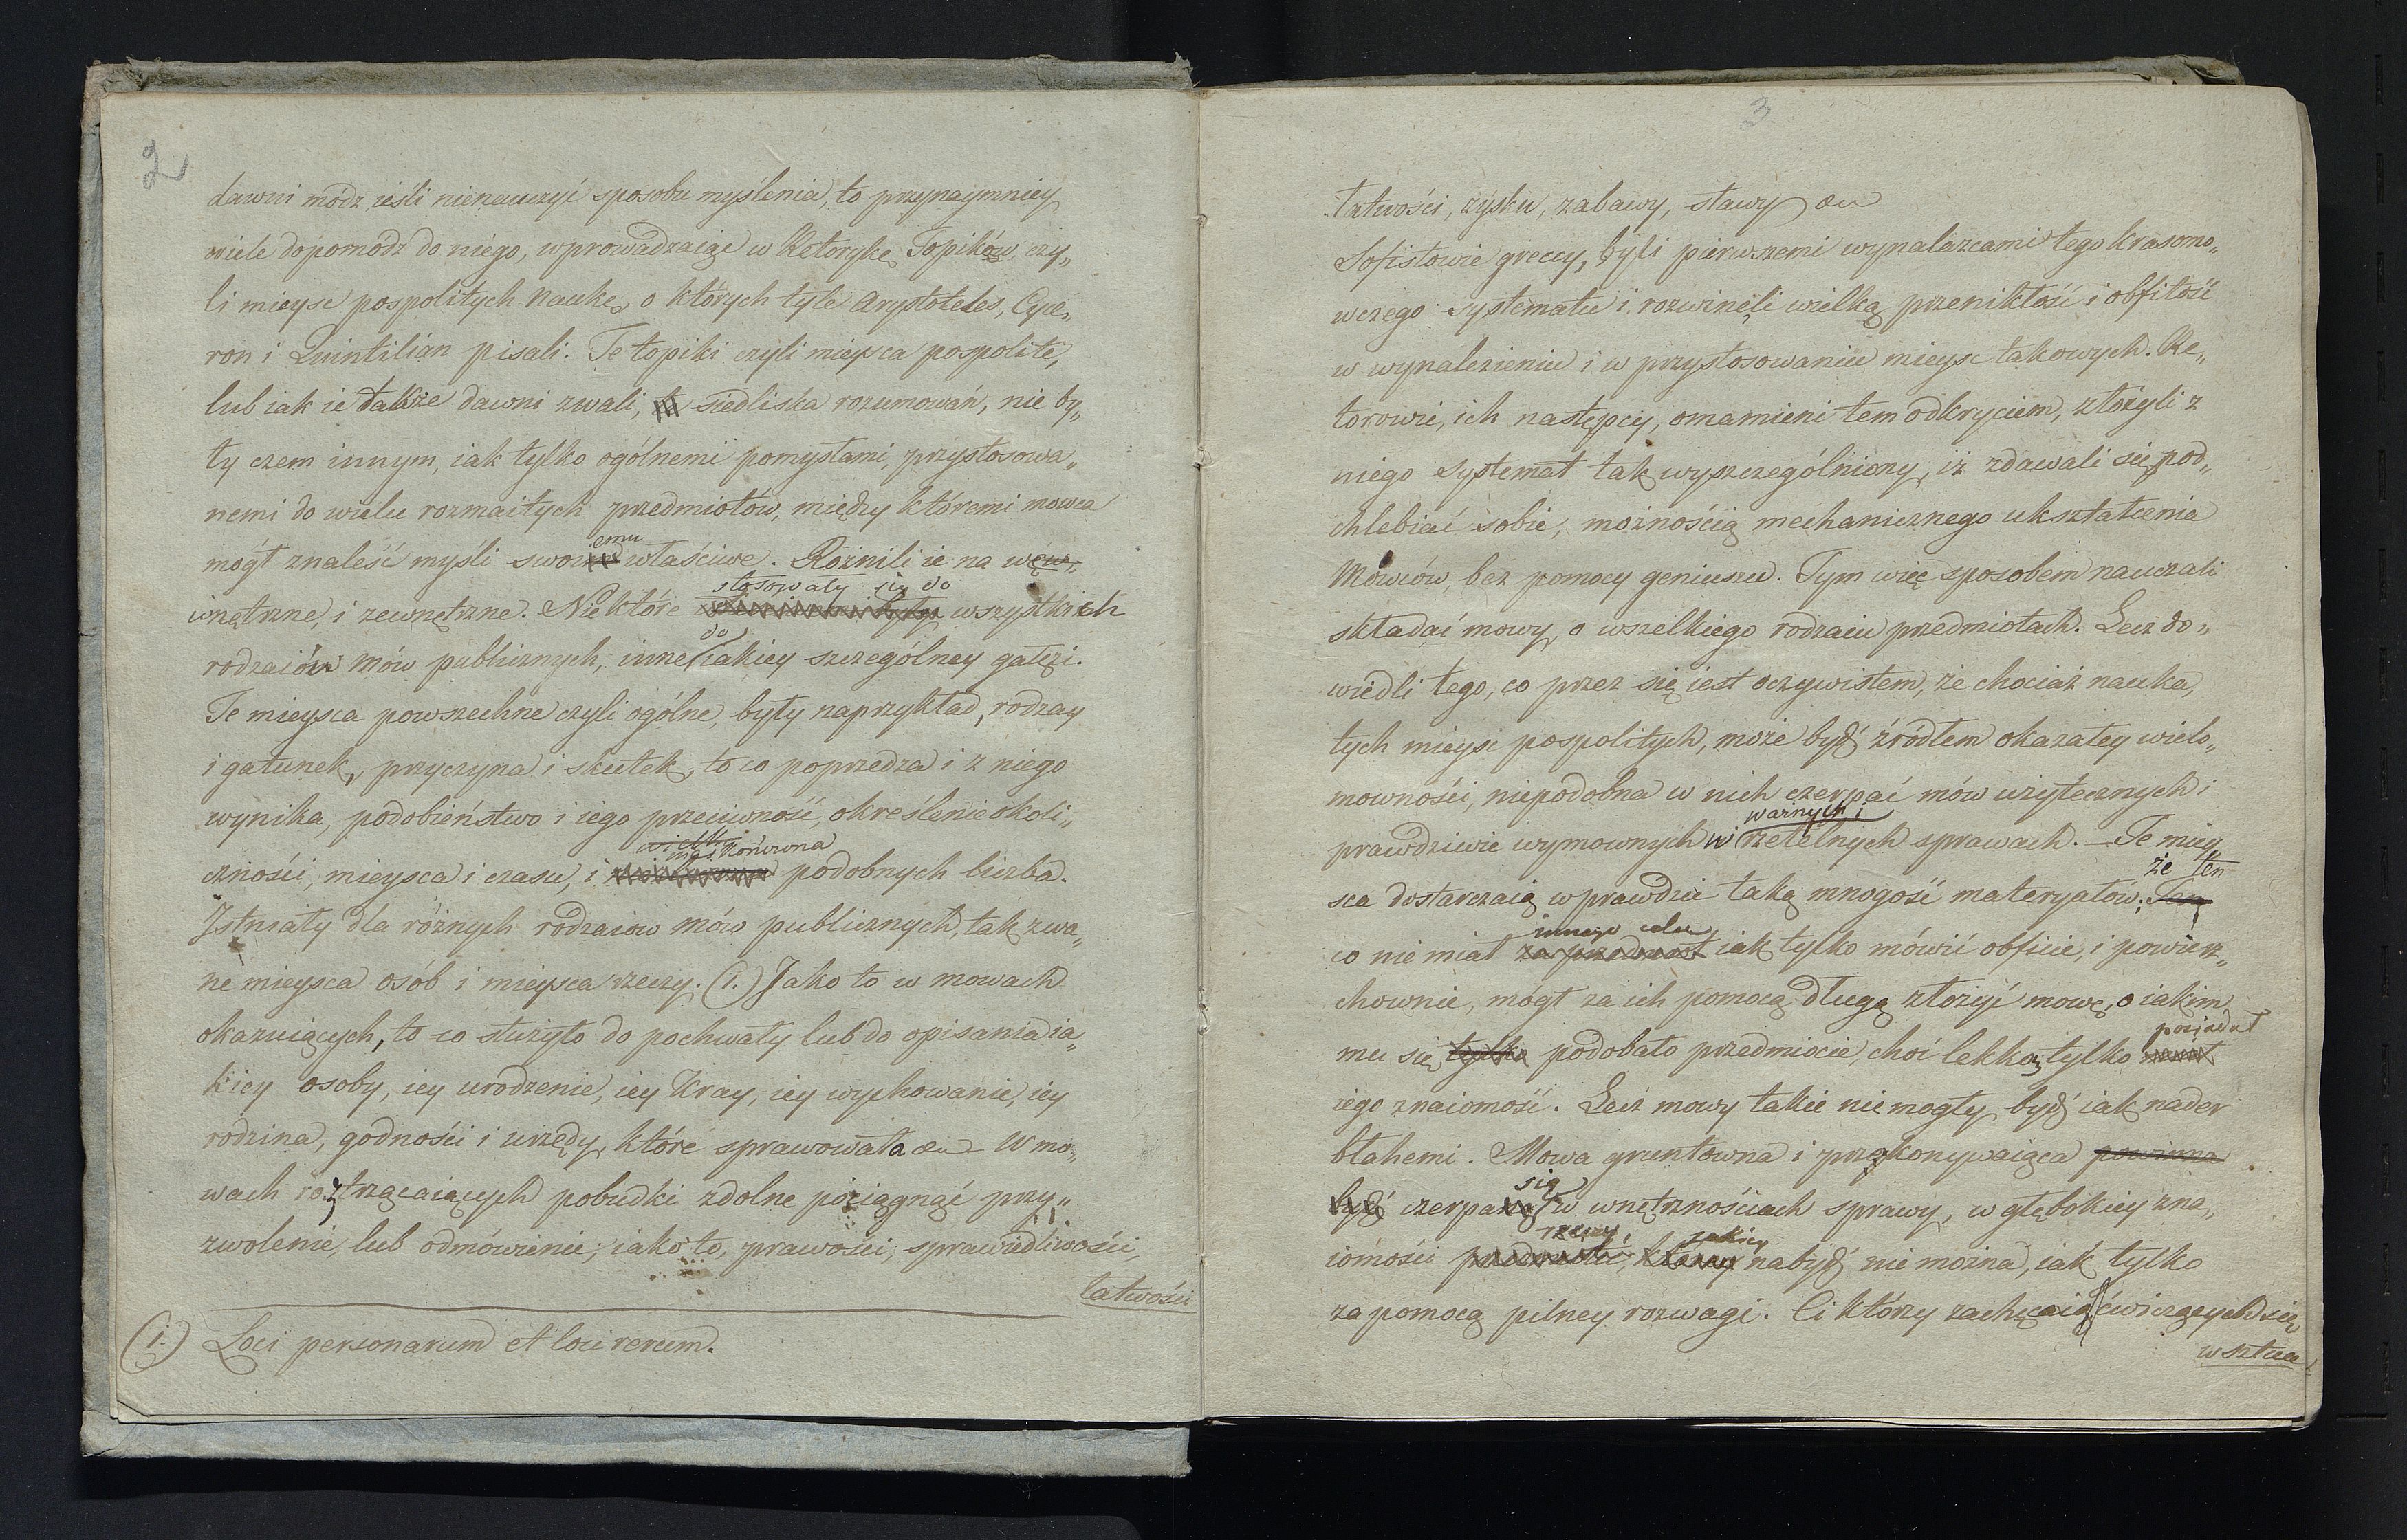 2
dawni módz ieśli nienauczyć sposobu myślenia, to przynaymniey
wiele dopomódz do niego, wprowadzaiąc w Retorykę Topików, czy„
li mieysc pospolitych naukę, o których tyle Arystoteles, Cyce„
ron i Quintilian pisali. Te topiki czyli mieysca pospolite,
lub iak ie także dawni zwali, siedliska rozumowań, nie by„
ły czem innym, iak tylko ogólnemi pomysłami, przystosowa„
nemi do wielu rozmaitych przedmiotów, między któremi mowca
emu
mógł znaleść myśli swoi właściwe. Rożnili ie na wew„
stosowały się do
wnętrzne, i zewnętrzne. Niektóre wszystkich
do
rodzaiów mów publicznych, inne iakiey szczególney gałęzi.
Te mieysca powszechne czyli ogólne, były naprzykład, rodzay
i gatunek, przyczyna i skutek, to co poprzedza i z niego
wynika, podobieństwo i iego przeciwność, określenie okoli„
wielka
nieskończona
czności, mieysca i czasu, i podobnych liczba.
Istniały dla różnych rodzaiów mów publicznych, tak zwa„
ne mieysca osób i mieysca rzeczy. (1.) Jako to w mowach
okazuiących, to co służyło do pochwały lub do opisania ia„
kiey osoby, iey urodzenie, iey kray, iey wychowanie, iey
rodzina, godności i urzędy, które sprawowała &c W mo„
wach roztrząsaiących pobudki zdolne pociągnąć przy„
zwolenie, lub odmówienie; iako to, prawości, sprawiedliwości,
łatwości
(1.) Loci personarum et loci rerum.
3
łatwości, zysku, zabawy, sławy &c
Sofistowie greccy, byli pierwszemi wynalazcami tego krasomo„
wczego systematu i rozwinęli wielką przenikłość i obfitość
w wynalezieniu i w przystosowaniu mieysc takowych. Re„
torowie, ich następcy, omamieni tem odkryciem, złożyli z
niego systemat tak wyszczególniony, iż zdawali się pod„
chlebiać sobie, możnością mechanicznego ukształcenia
Mówców, bez pomocy geniuszu. Tym więc sposobem nauczali
składać mowy, o wszelkiego rodzaiu przedmiotach. Lecz do„
wiedli tego, co przez się iest oczywistem, że chociaż nauka,
tych mieysc pospolitych, może bydź źródłem okazałey wielo„
mowności, niepodobna w nich czerpać mów użytecznych i
ważnych i
prawdziwie wymownych w rzetelnych sprawach. — Te miey
że ten
sca dostarczaią wprawdzie taką mnogość materyałów, Ten
innego celu
co nie miał za przedmiot iak tylko mówić obficie, i powierz„
chownie, mógł za ich pomocą długą złożyć mowę, o iakim
posiadał
mu się tylko podobało przedmiocie, choć lekką tylko miał
iego znaiomość. Lecz mowy takie nie mogły bydź iak nader
błahemi. Mowa gruntowna i przekonywaiąca powinna
się
bydź czerpana w wnętrznościach sprawy, w głębokiey zna„
rzeczy, jakiey
iomości przedmiotu, którey nabydź nie można, iak tylko
za pomocą pilney rozwagi. Ci którzy zachęcaią ćwiczących się
w sztuce